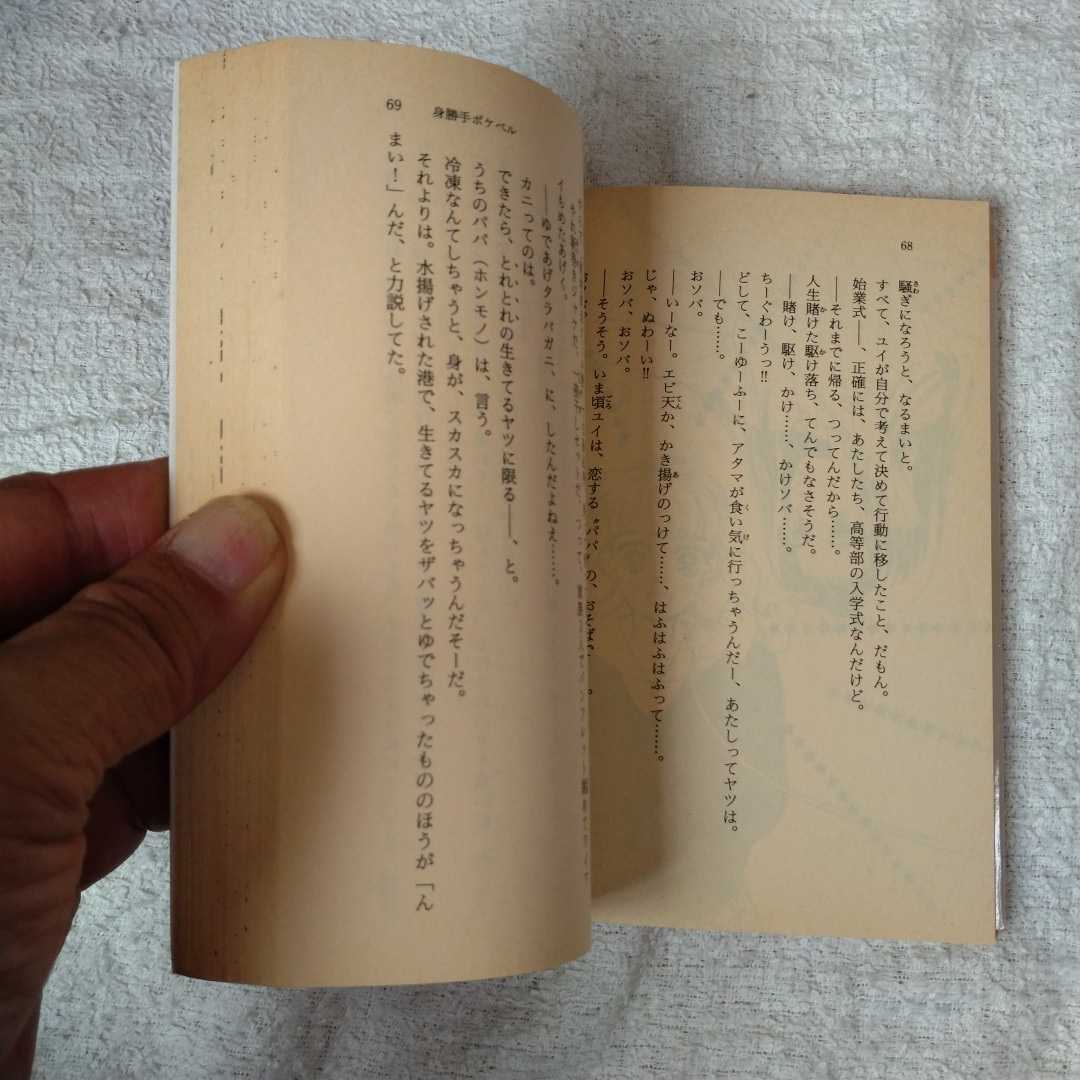 68
騒ぎになろうと、なるまいと。
すべて、ユイが自分で考えて決めて行動に移したこと、だもん。
始業式――、正確には、あたしたち、高等部の入学式なんだけど。
――それまでに帰る、つってんだから……。
人生賭けた駆け落ち、てんでもなさそうだ。
――賭け、駆け、かけ……、かけソバ……。
ちーぐわーうっ!!
どして、こーゆーふーに、アタマが食い気に行っちゃうんだー、あたしってヤツは。
――でも……。
おソバ。
――いーなー。エビ天か、かき揚げのっけて……、はふはふはふって……。
じゃ、ぬわーい!!
おソバ、おソバ。
――そうそう。いま頃ユイは、恋する〝パパ〟の、おそばで
69 身勝手ポケベル
イもめたあげく。
――ゆであげタラバガニ、に、したんだよねえ……。
カニってのは。
できたら、とれとれの生きてるヤツに限る――、と。
うちのパパ（ホンモノ）は、言う。
冷凍なんてしちゃうと、身が、スカスカになっちゃうんだそーだ。
それよりは。水揚げされた港で、生きてるヤツをザバッとゆでちゃったもののほうが「ん
まい！」んだ、と力説してた。